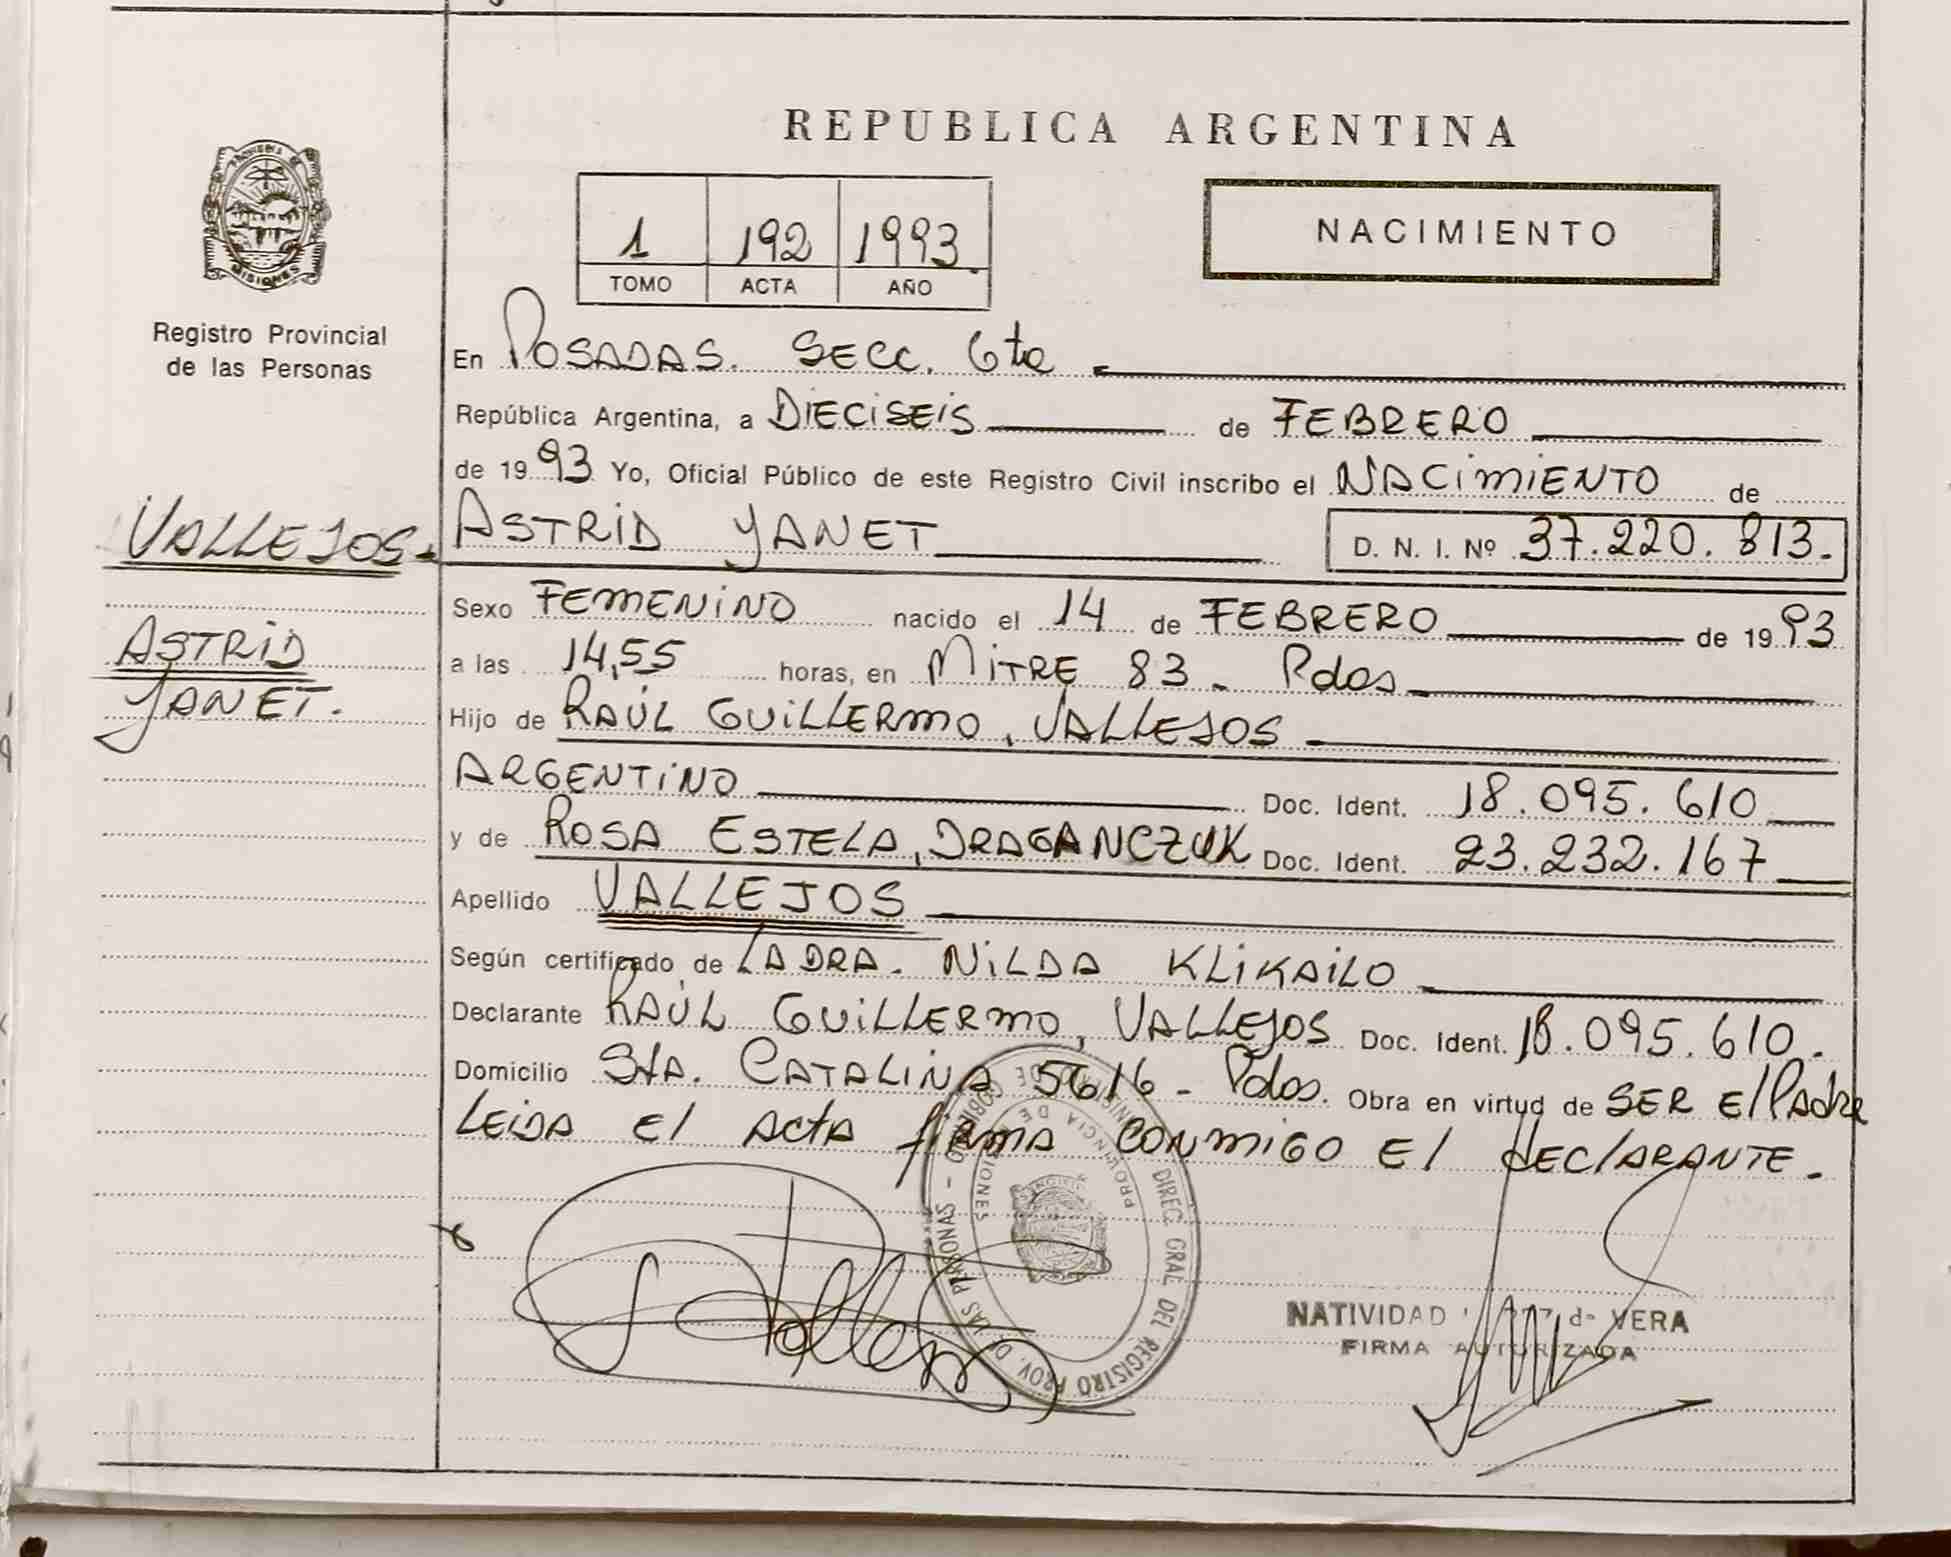 REPUBLICA ARGENTINA
PROVINCIA DE
MISIONES
Registro Provincial
de las Personas
1 192 1993
TOMO ACTA AÑO
NACIMIENTO
En POSADAS. SECC. 6ta
República Argentina, a DIECISEIS de FEBRERO
de 1993 Yo, Oficial Público de este Registro Civil inscribo el NACIMIENTO de
VALLEJOS
ASTRID YANET D. N. I. Nº 37.220.813.
Sexo FEMENINO nacido el 14 de FEBRERO de 1993
ASTRID
YANET.
a las 14,55 horas, en MITRE 83 - Pdas
Hijo de RAÚL GUILLERMO, VALLEJOS
ARGENTINO Doc. Ident. 18.095.610
y de ROSA ESTELA, DRAGANCZUK Doc. Ident. 23.232.167
Apellido VALLEJOS
Según certificado de LA DRA. NILDA KLIKAILO
Declarante RAÚL GUILLERMO, VALLEJOS Doc. Ident. 18.095.610.
Domicilio Sta. CATALINA 5616 - Pdas. Obra en virtud de SER El Padre
LEIDA El ACTA fIRMA CONMIGO El dECLARANTE.
DIREC. GRAL DEL REGISTRO PROV. DE LAS PERSONAS
PROVINCIA DE MISIONES
NATIVIDAD de VERA
FIRMA AUTORIZADA